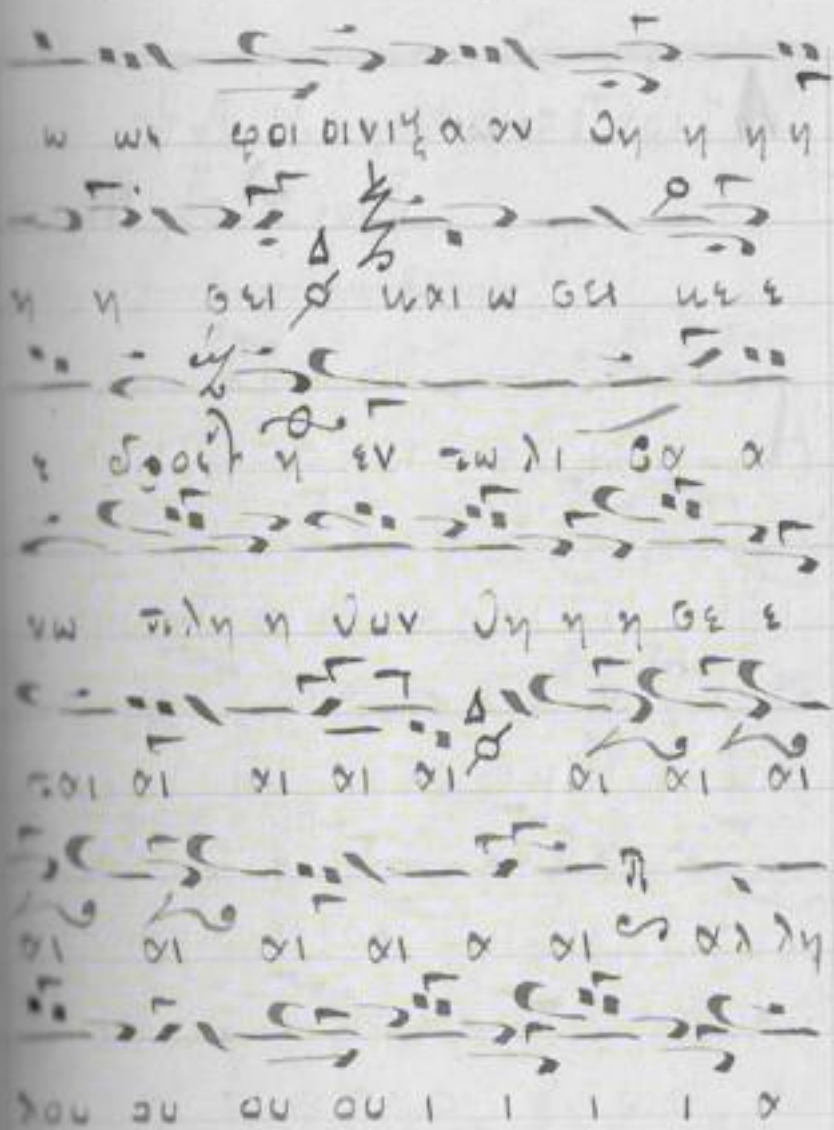 ω ως φοι οινιξ α αν θη η η η
η η σει και ω σει κε ε
ε δρος η εν τω λι βα α
νω πλη η θυν θη η η σε ε
ται αι αι αι αι αι αι αι
αι αι αι αι α αι αλ λη
λου ου ου ου ι ι ι ι α